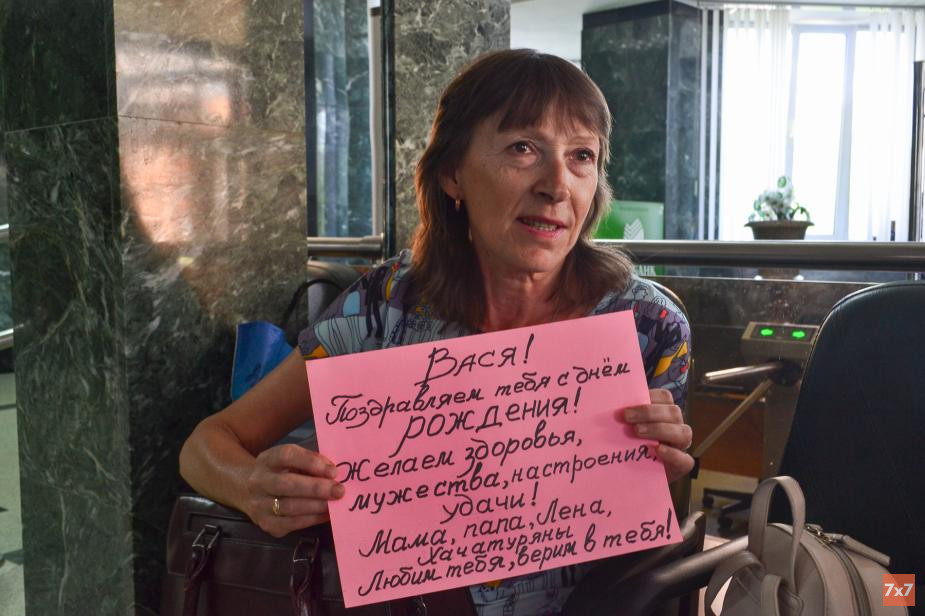 Вася!
Поздравляем тебя с днём
рождения!
Желаем здоровья,
мужества, настроения,
удачи!
Мама, папа, Лена,
Хачатуряны
Любим тебя, верим в тебя!
7x7